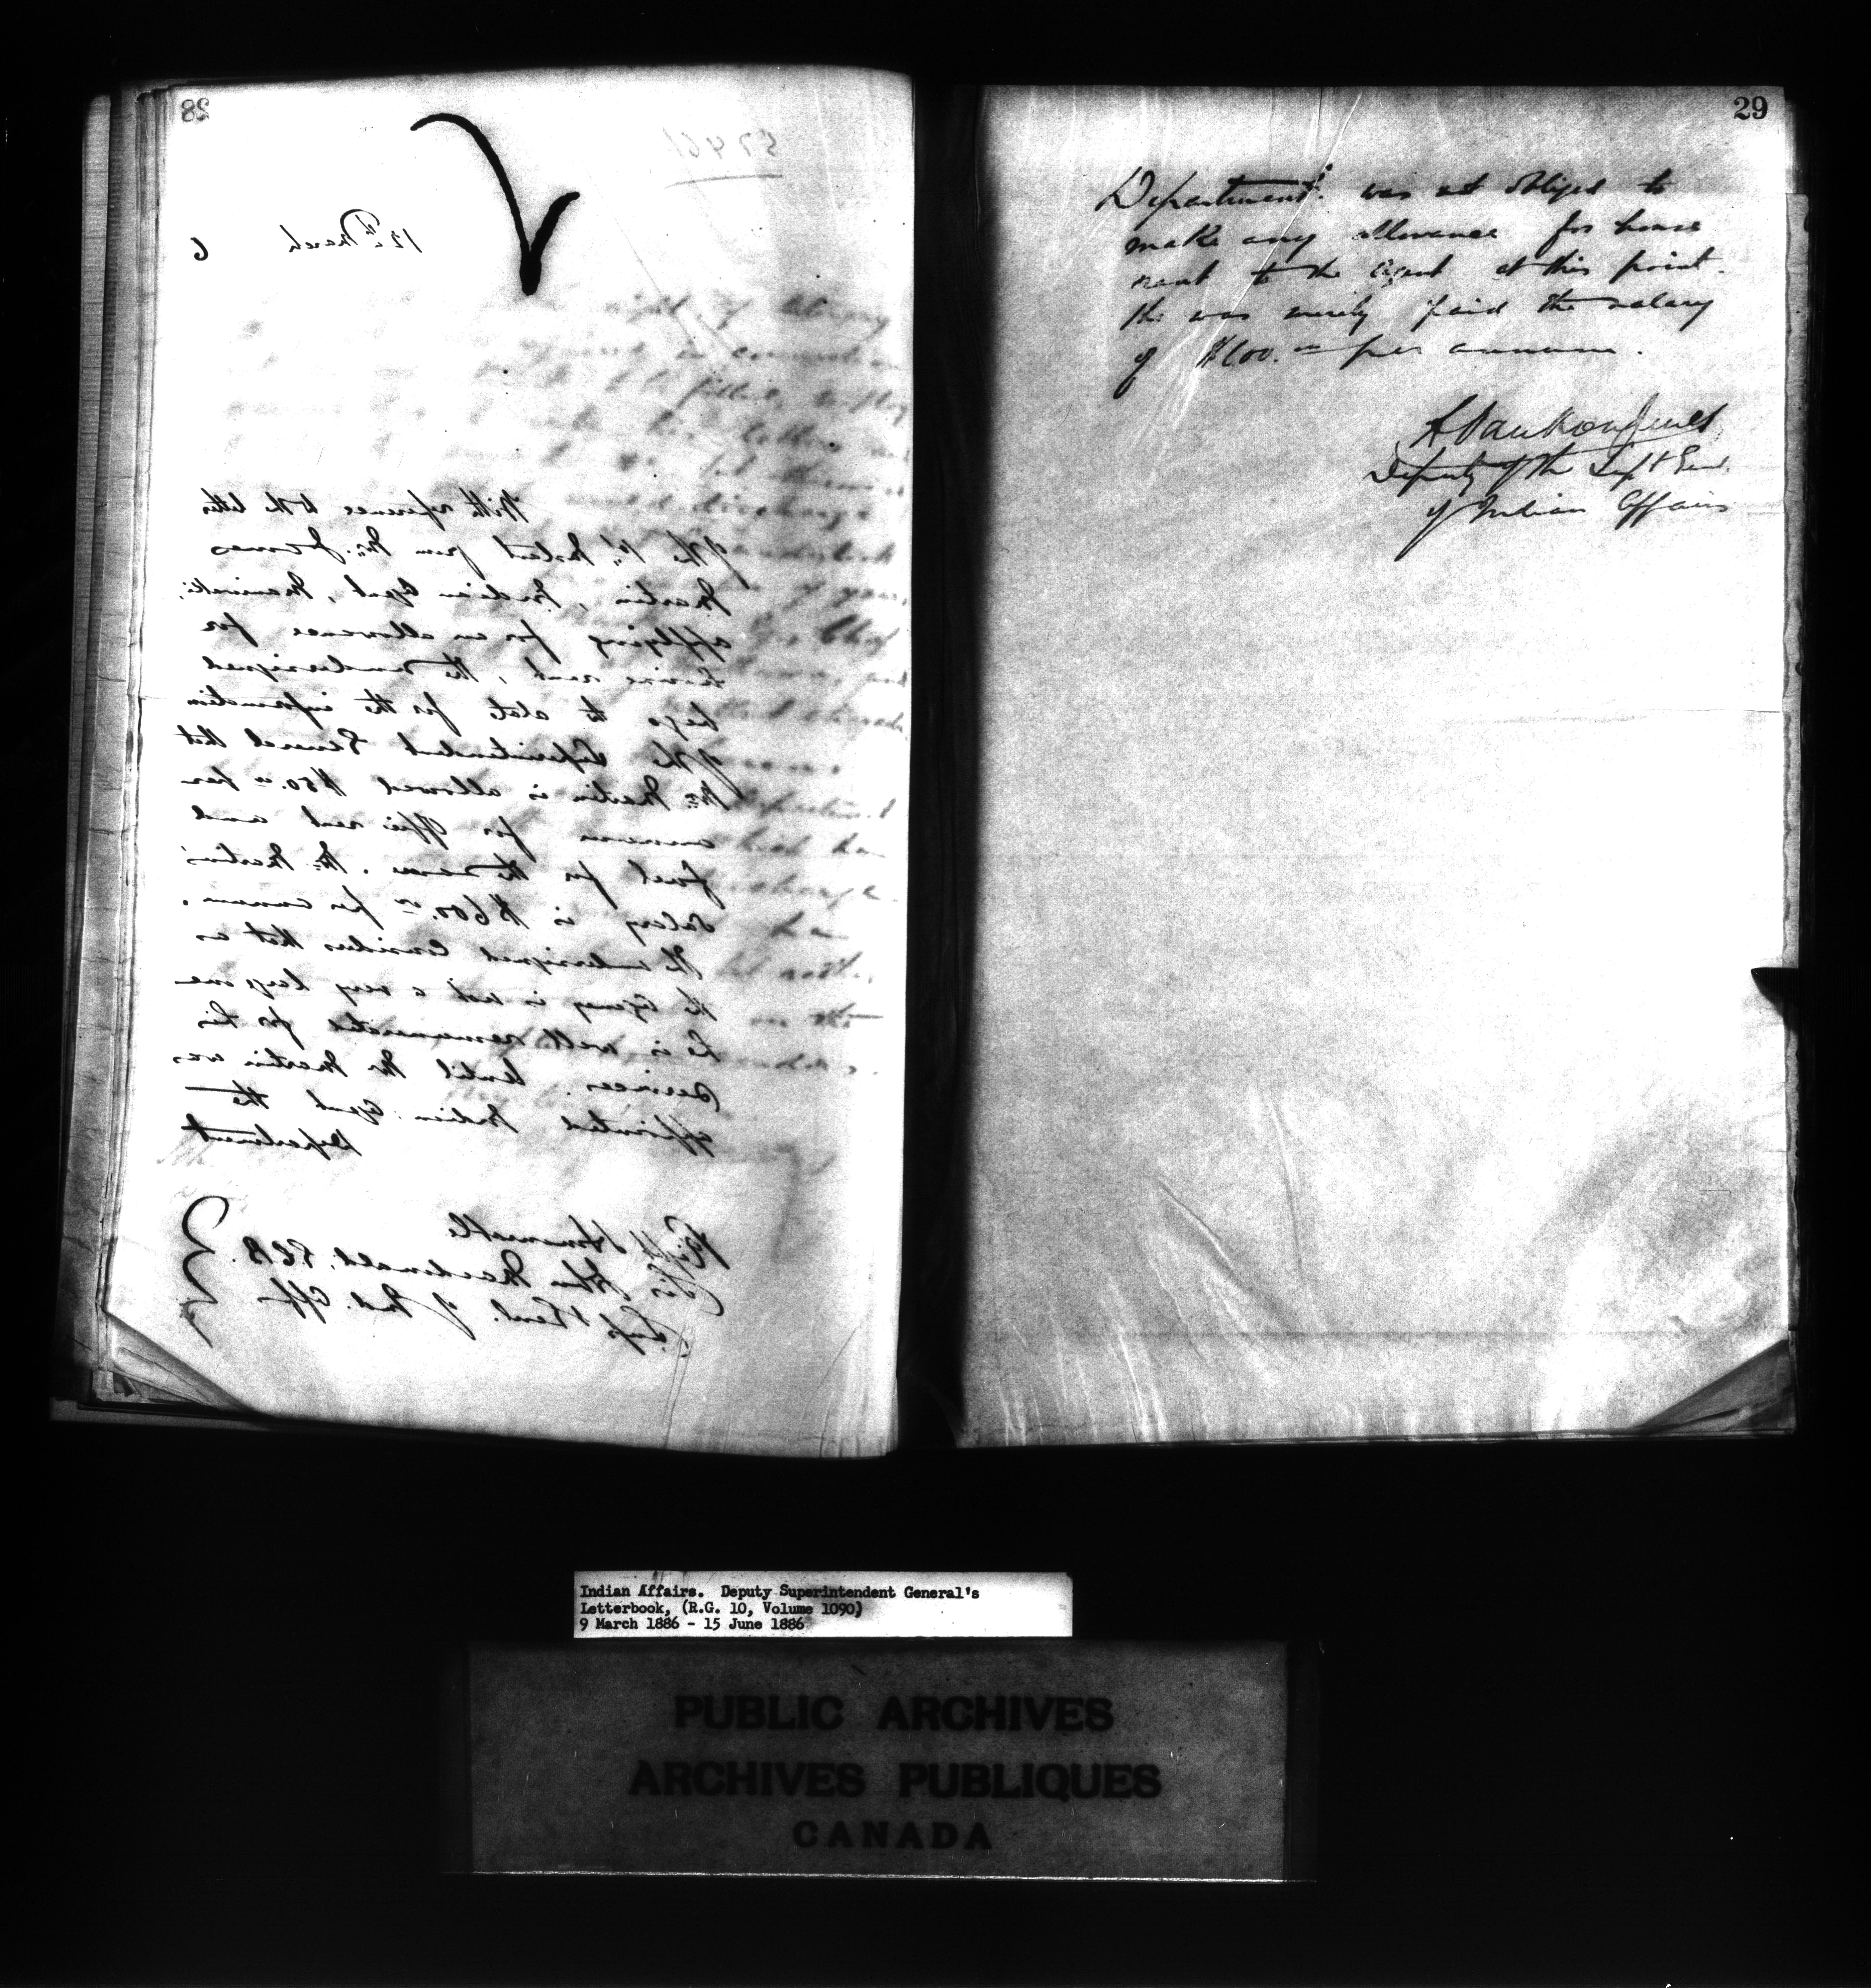 28
57461
12th March 6
With reference to the letter
of the 1st Instant from Mr. James
Martin, Indian Agent, Maniwaki,
applying for an allowance for
house rent, the undersigned
begs to state for the information
of the Superintendent General that
Mr. Martin is allowed $50.00 per
annum for office rent and
fuel for the same. Mr. Martin's
salary is $600.00 per annum.
The undersigned considers that as
the Agency is not a very large one
he is well remunerated for his
services. Until Mr Martin was
appointed Indian Agent the
Department
Right Honorable
Sir John Macdonald, G.C.B.
Supt Genl. of Ind. Affrs
29
Department was not obliged to
make any allowance for house
rent to the Agent at this point.
He was merely paid the salary
of $600.00 per annum.
L Vankoughnet
Deputy of the Supt Genl.
of Indian Affairs
Indian Affairs. Deputy Superintendent General's
Letterbook, (R.G. 10, Volume 1090)
9 March 1886 - 15 June 1886
PUBLIC ARCHIVES
ARCHIVES PUBLIQUES
CANADA